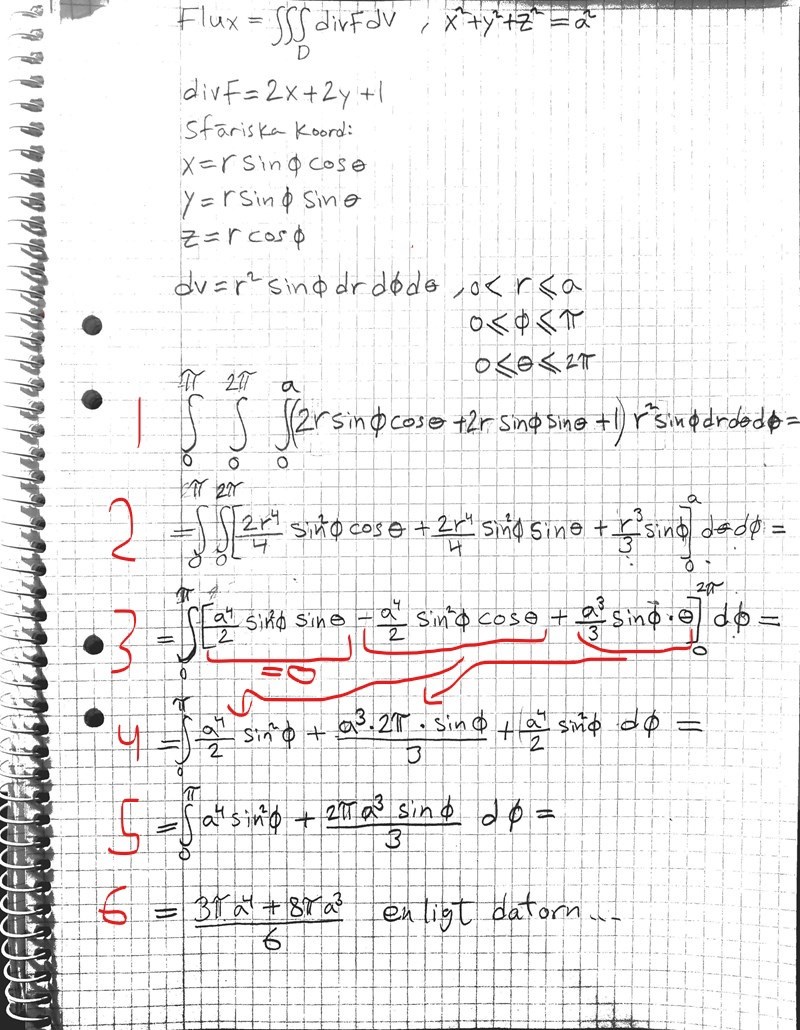 Flux = ∭_D divFdV , x²+y²+z² = a²
divF = 2x+2y+1
Sfäriska koord:
x = r sinϕ cosθ
y = r sinϕ sinθ
z = r cosϕ
dv = r² sinϕ dr dϕ dθ , 0 < r ⩽ a
0 ⩽ ϕ ⩽ π
0 ⩽ θ ⩽ 2π
1 ∫_0^π ∫_0^2π ∫_0^a (2r sinϕ cosθ + 2r sinϕ sinθ + 1) r² sinϕ dr dθ dϕ =
2 = ∫_0^π ∫_0^2π [2r⁴/4 sin²ϕ cosθ + 2r⁴/4 sin²ϕ sinθ + r³/3 sinϕ]_0^a dθ dϕ =
3 = ∫_0^π [a⁴/2 sin²ϕ sinθ − a⁴/2 sin²ϕ cosθ + a³/3 sinϕ·θ]_0^2π dϕ =
= 0
4 = ∫_0^π a⁴/2 sin²ϕ + a³·2π·sinϕ/3 + a⁴/2 sin²ϕ dϕ =
5 = ∫_0^π a⁴ sin²ϕ + 2πa³ sinϕ/3 dϕ =
6 = 3πa⁴ + 8πa³/6 enligt datorn...